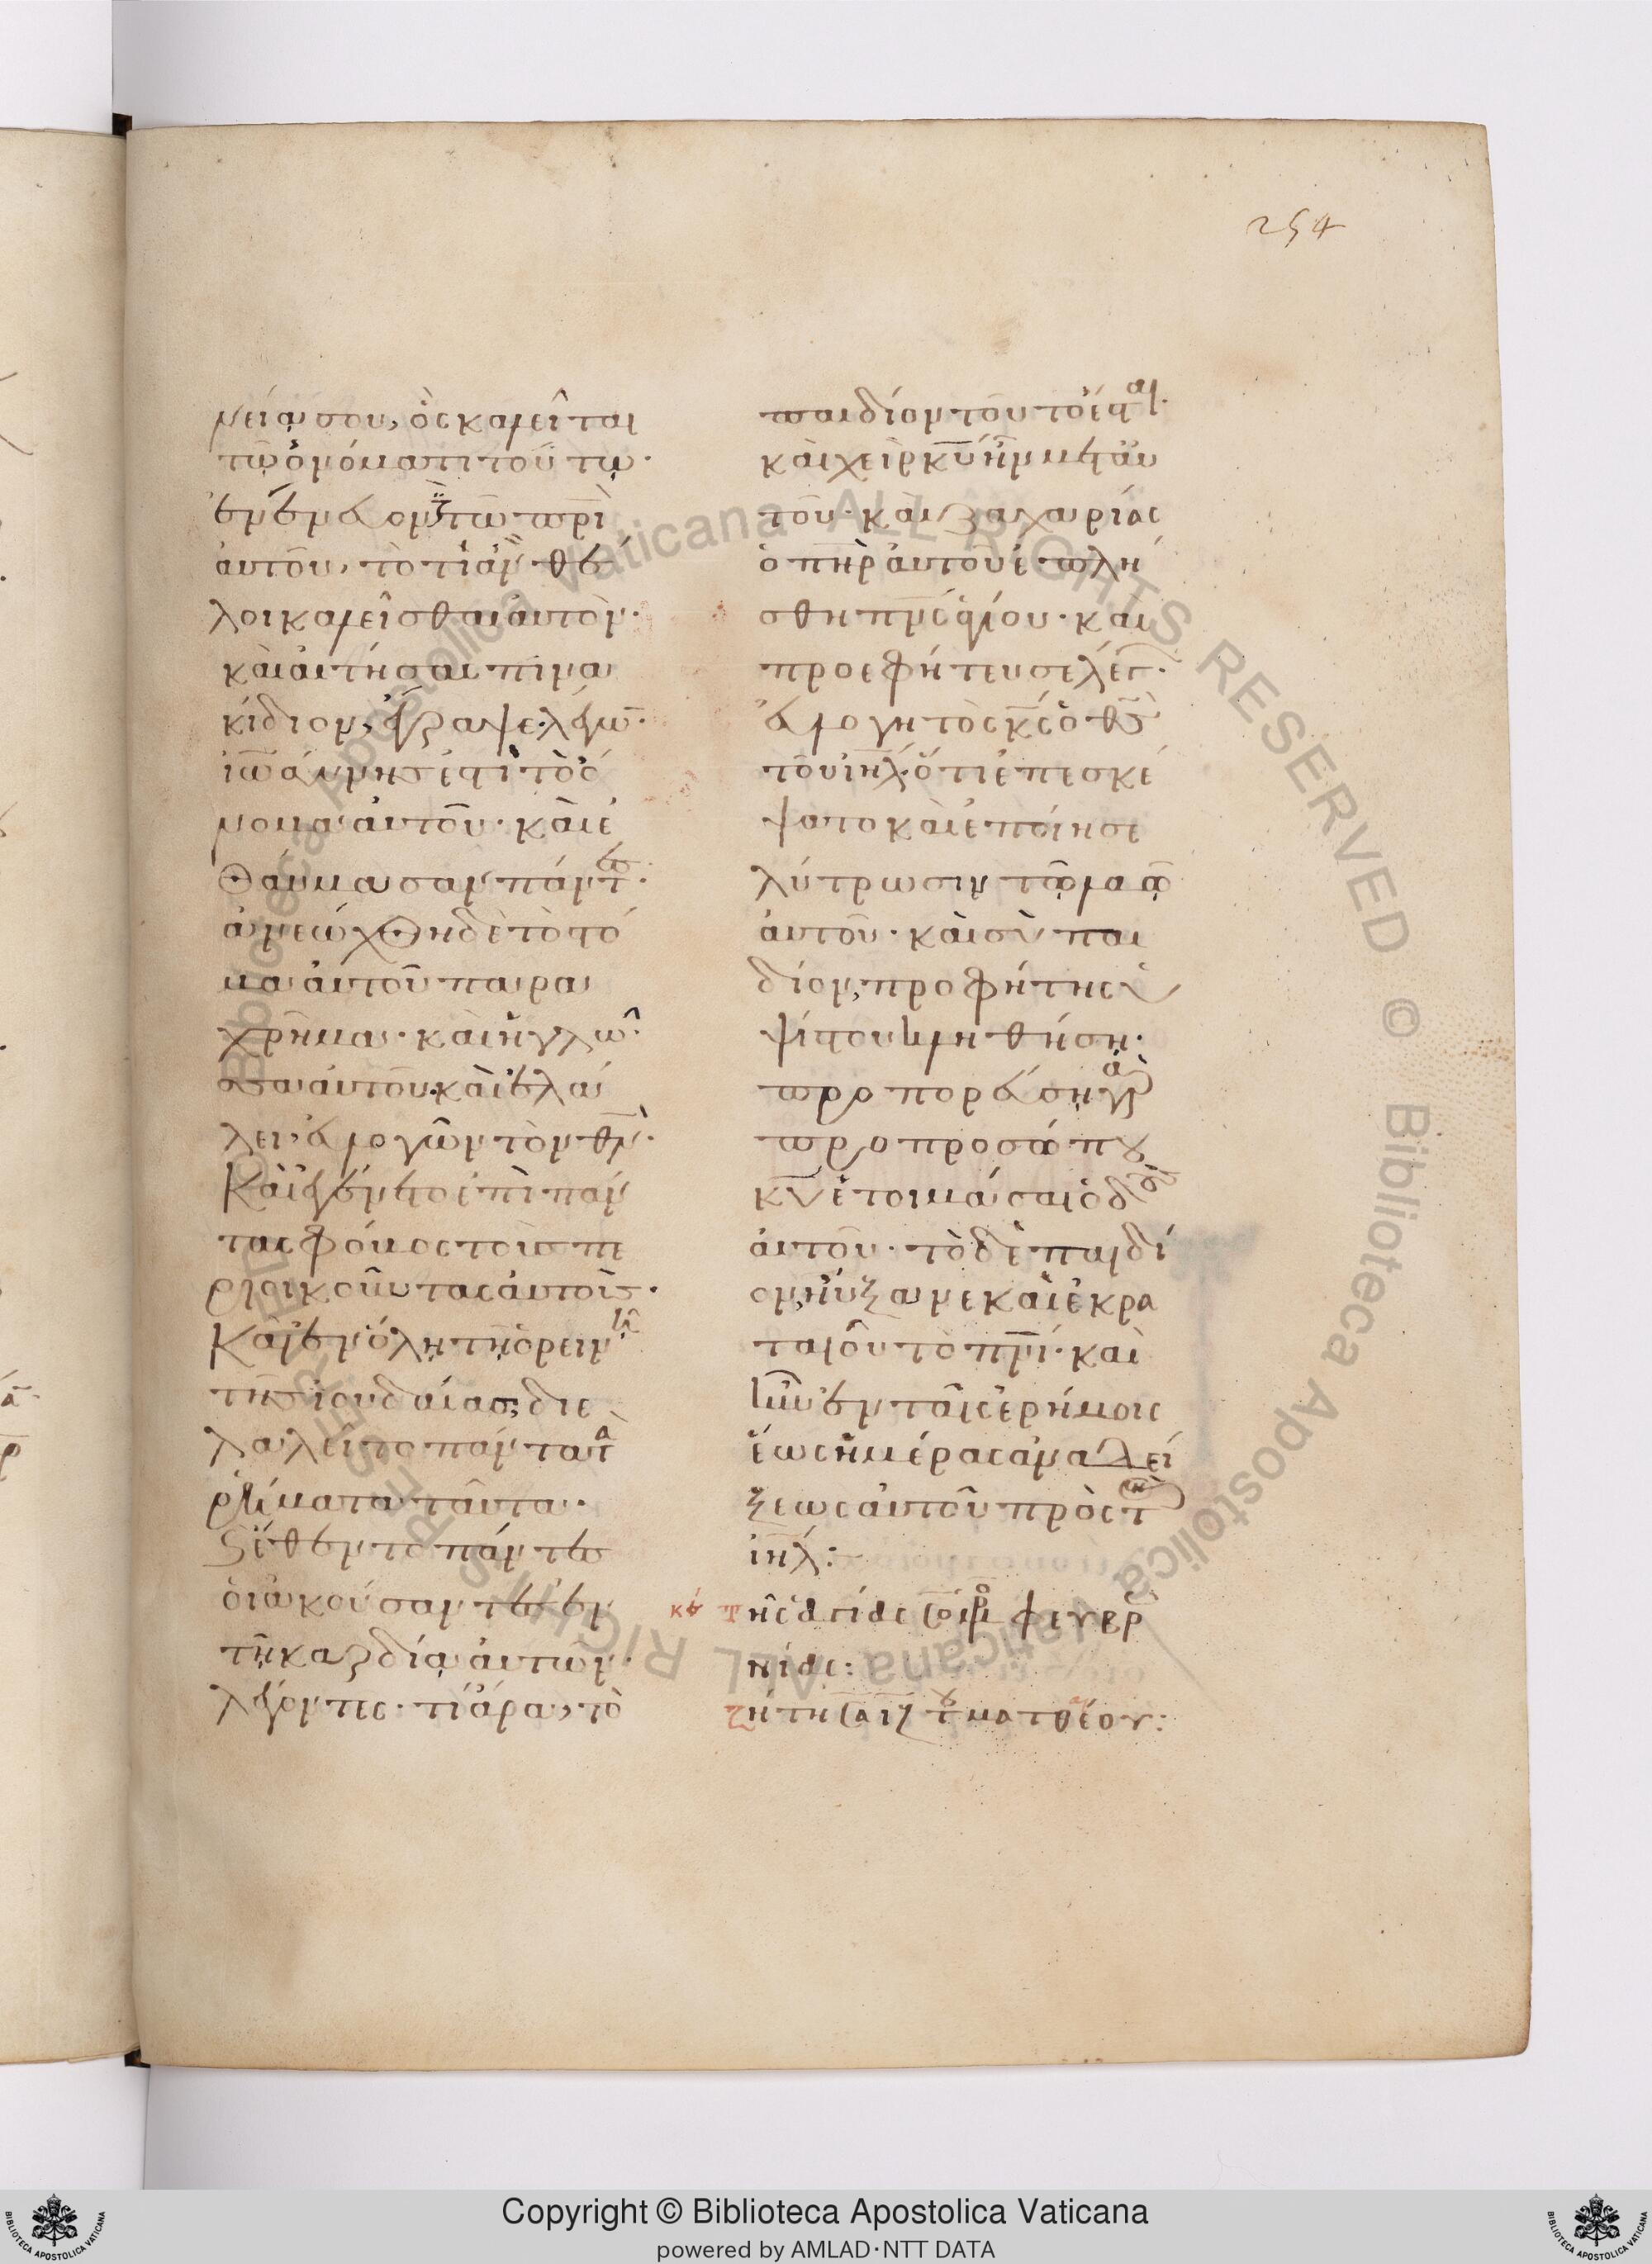 254
νεία σου, ὃς καλεῖται
τῶ ὀνόματι τούτω·
ἐνένευον δὲ τῶ πρὶ
αὐτοῦ, τὸ τί ἂν θέ
λοι καλεῖσθαι αὐτόν·
καὶ αἰτήσας πινα
κίδιον, ἔγραψε λέγων·
ἰωάννης ἐστὶ τὸ ὄ
νομα αὐτοῦ· καὶ ἐ
θαύμασαν πάντες·
ἀνεώχθη δὲ τὸ στό
μα αὐτοῦ παρα
χρῆμα· καὶ ἡ γλῶσ
σα αὐτοῦ· καὶ ἐλά
λει εὐλογῶν τὸν θν·
Καὶ ἐγένετο ἐπὶ πάν
τας φόβος τοὺς πε
ριοικοῦντας αὐτούς·
Καὶ ἐν ὅλη τῆ ὀρεινῆ
τῆς ἰουδαίας, διε
λαλεῖτο πάντα τὰ
ῥήματα ταῦτα·
Καὶ ἔθεντο πάντες
οἱ ἀκούσαντες ἐν
τῆ καρδία αὐτῶν·
λέγοντες· τί ἄρα, τὸ
παιδίον τοῦτο ἔσται·
καὶ χεὶρ κυ ἦν μετ αὐ
τοῦ· καὶ ζαχαρίας
ὁ πηρ αὐτοῦ ἐπλή
σθη πνς ἁγίου· καὶ
προεφήτευσε λέγων·
εὐλογητὸς κς ὁ θς
τοῦ ιηλ· ὅτι ἐπεσκέ
ψατο καὶ ἐποίησε
λύτρωσιν τῶ λαῶ
αὐτοῦ· καὶ σὺ παι
δίον, προφήτης ὑ
ψίστου κληθήση·
προπορεύση γὰρ
πρὸ προσώπου
κυ ἑτοιμάσαι ὁδοὺς
αὐτοῦ· τὸ δὲ παιδί
ον, ηὔξανε καὶ ἐκρα
ταιοῦτο πνι· καὶ
ἦν ἐν ταῖς ἐρήμοις
ἕως ἡμέρας ἀναδεί
ξεως αὐτοῦ πρὸς τὸν
ιηλ:
κε Τῆς ἁγίας ὁσιομ φευρ
νίας:
Ζήτει σα ιζ τοῦ ματθαίου:
Copyright © Biblioteca Apostolica Vaticana
powered by AMLAD·NTT DATA
Biblioteca Apostolica Vaticana ALL RIGHTS RESERVED © Biblioteca Apostolica Vaticana ALL RIGHTS RESERVED
BIBLIOTECA APOSTOLICA VATICANA
BIBLIOTECA APOSTOLICA VATICANA